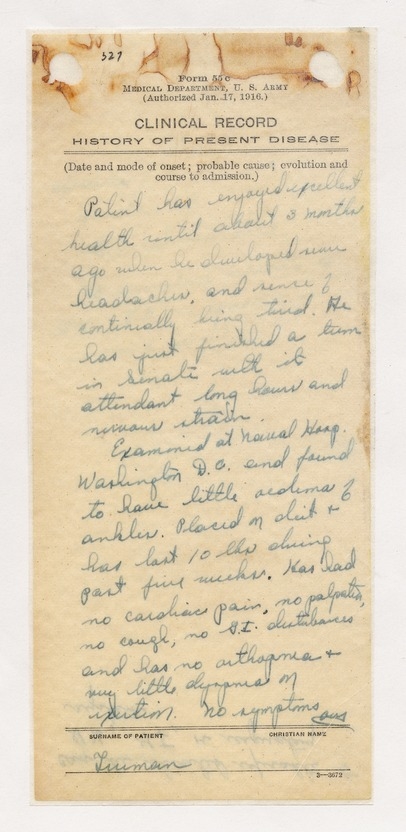 327
Form 55c
MEDICAL DEPARTMENT, U. S. ARMY
(Authorized Jan. 17, 1916.)
CLINICAL RECORD
HISTORY OF PRESENT DISEASE
(Date and mode of onset; probable cause; evolution and
course to admission.)
Patint has enjoyed excellent
health until about 3 months
ago when he developed
headaches, and sense of
continially being tired. He
has just finished a term
in Senate with its
attendant long hours and
nervous strain.
Examined at Naval Hosp.
Washington D.C. and found
to have little oedema of
ankles. Placed on diet +
has lost 10 lbs during
past five weeks. Has had
no cardiac pain, no palpitation,
no cough, no G.I. disturbances
and has no orthopnea +
very little dyspnea on
exertion. No symptoms
SURNAME OF PATIENT
CHRISTIAN NAME
Truman
3—3672